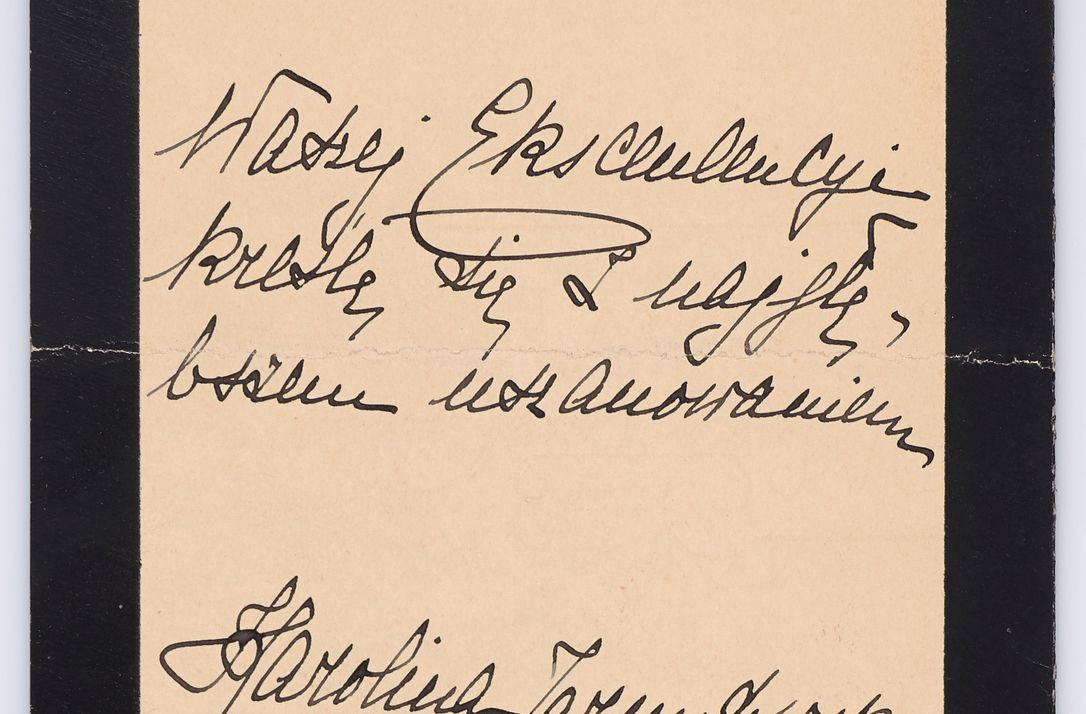 Waszej Ekscellencyi
kreślę się z najgłę„
bszem uszanowaniem
Karolina